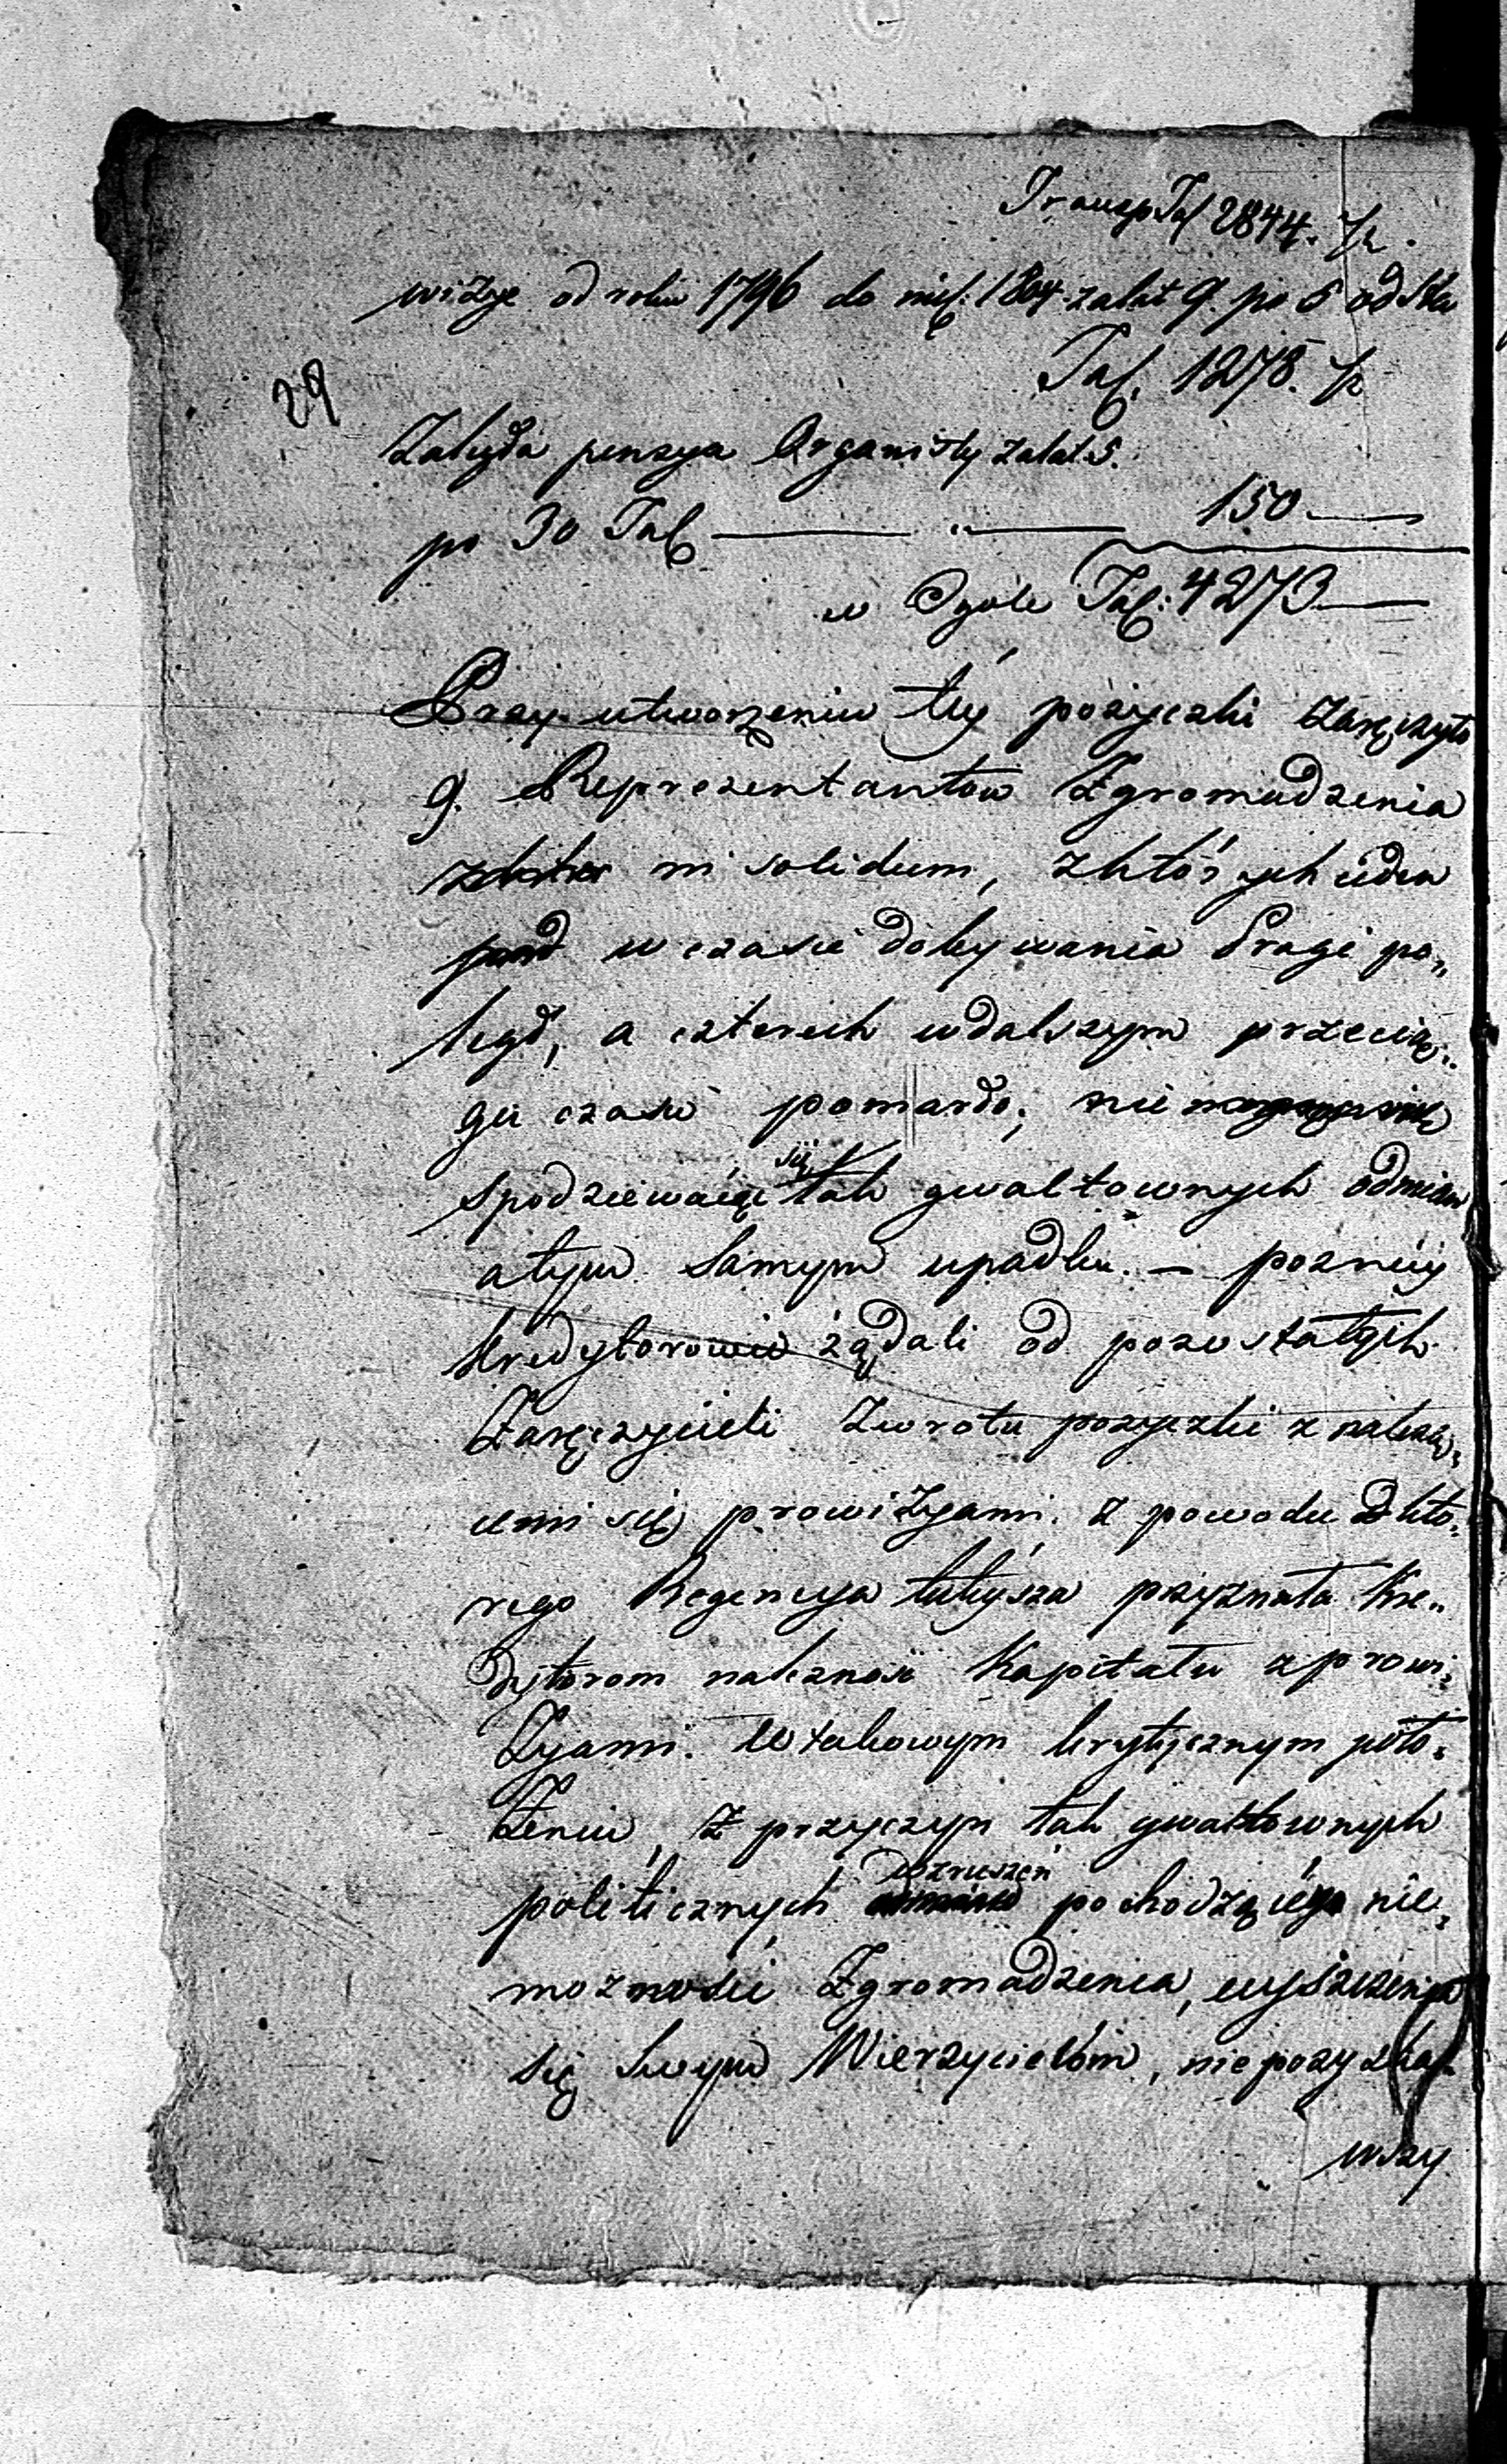 Transp Tal 2844. „
wizye od roku 1796 do incl: 1804 za lat 9. po 5 od Sta
Tal. 1278. „
29
Zaległa pensya Organisty za lat 5.
po 30 Tal — „ — 150 —
w Ogóle Tal: 4273 —
Przy utworzeniu téy pożyczki zaręczyło
9. Reprezentantow Zgromadzenia
in solidum, z których ieden
w czasie dobywania Pragi po„
legł, a czterech w dalszym przecią„
gu czasu pomarło; nie
spodziewaiąc się tak gwałtownych odmian
a tym samym upadku. — pozniéy
kredytorowie żądali od pozostałych
Zaręczycieli zwrotu pożyczki z należą„
cemi się prowizyami. z powodu któ„
rego Regencya tuteysza przyznała Kre„
dytorom należność Kapitału z prowi„
zyami. W takowym krytycznym poło„
żeniu, z przyczyn tak gwałtownych
politicznych wzruszeń pochodzącéy nie„
możnosci Zgromadzenia, uiszczenia
się swym Wierzycielóm, nie pozyska„
wszy